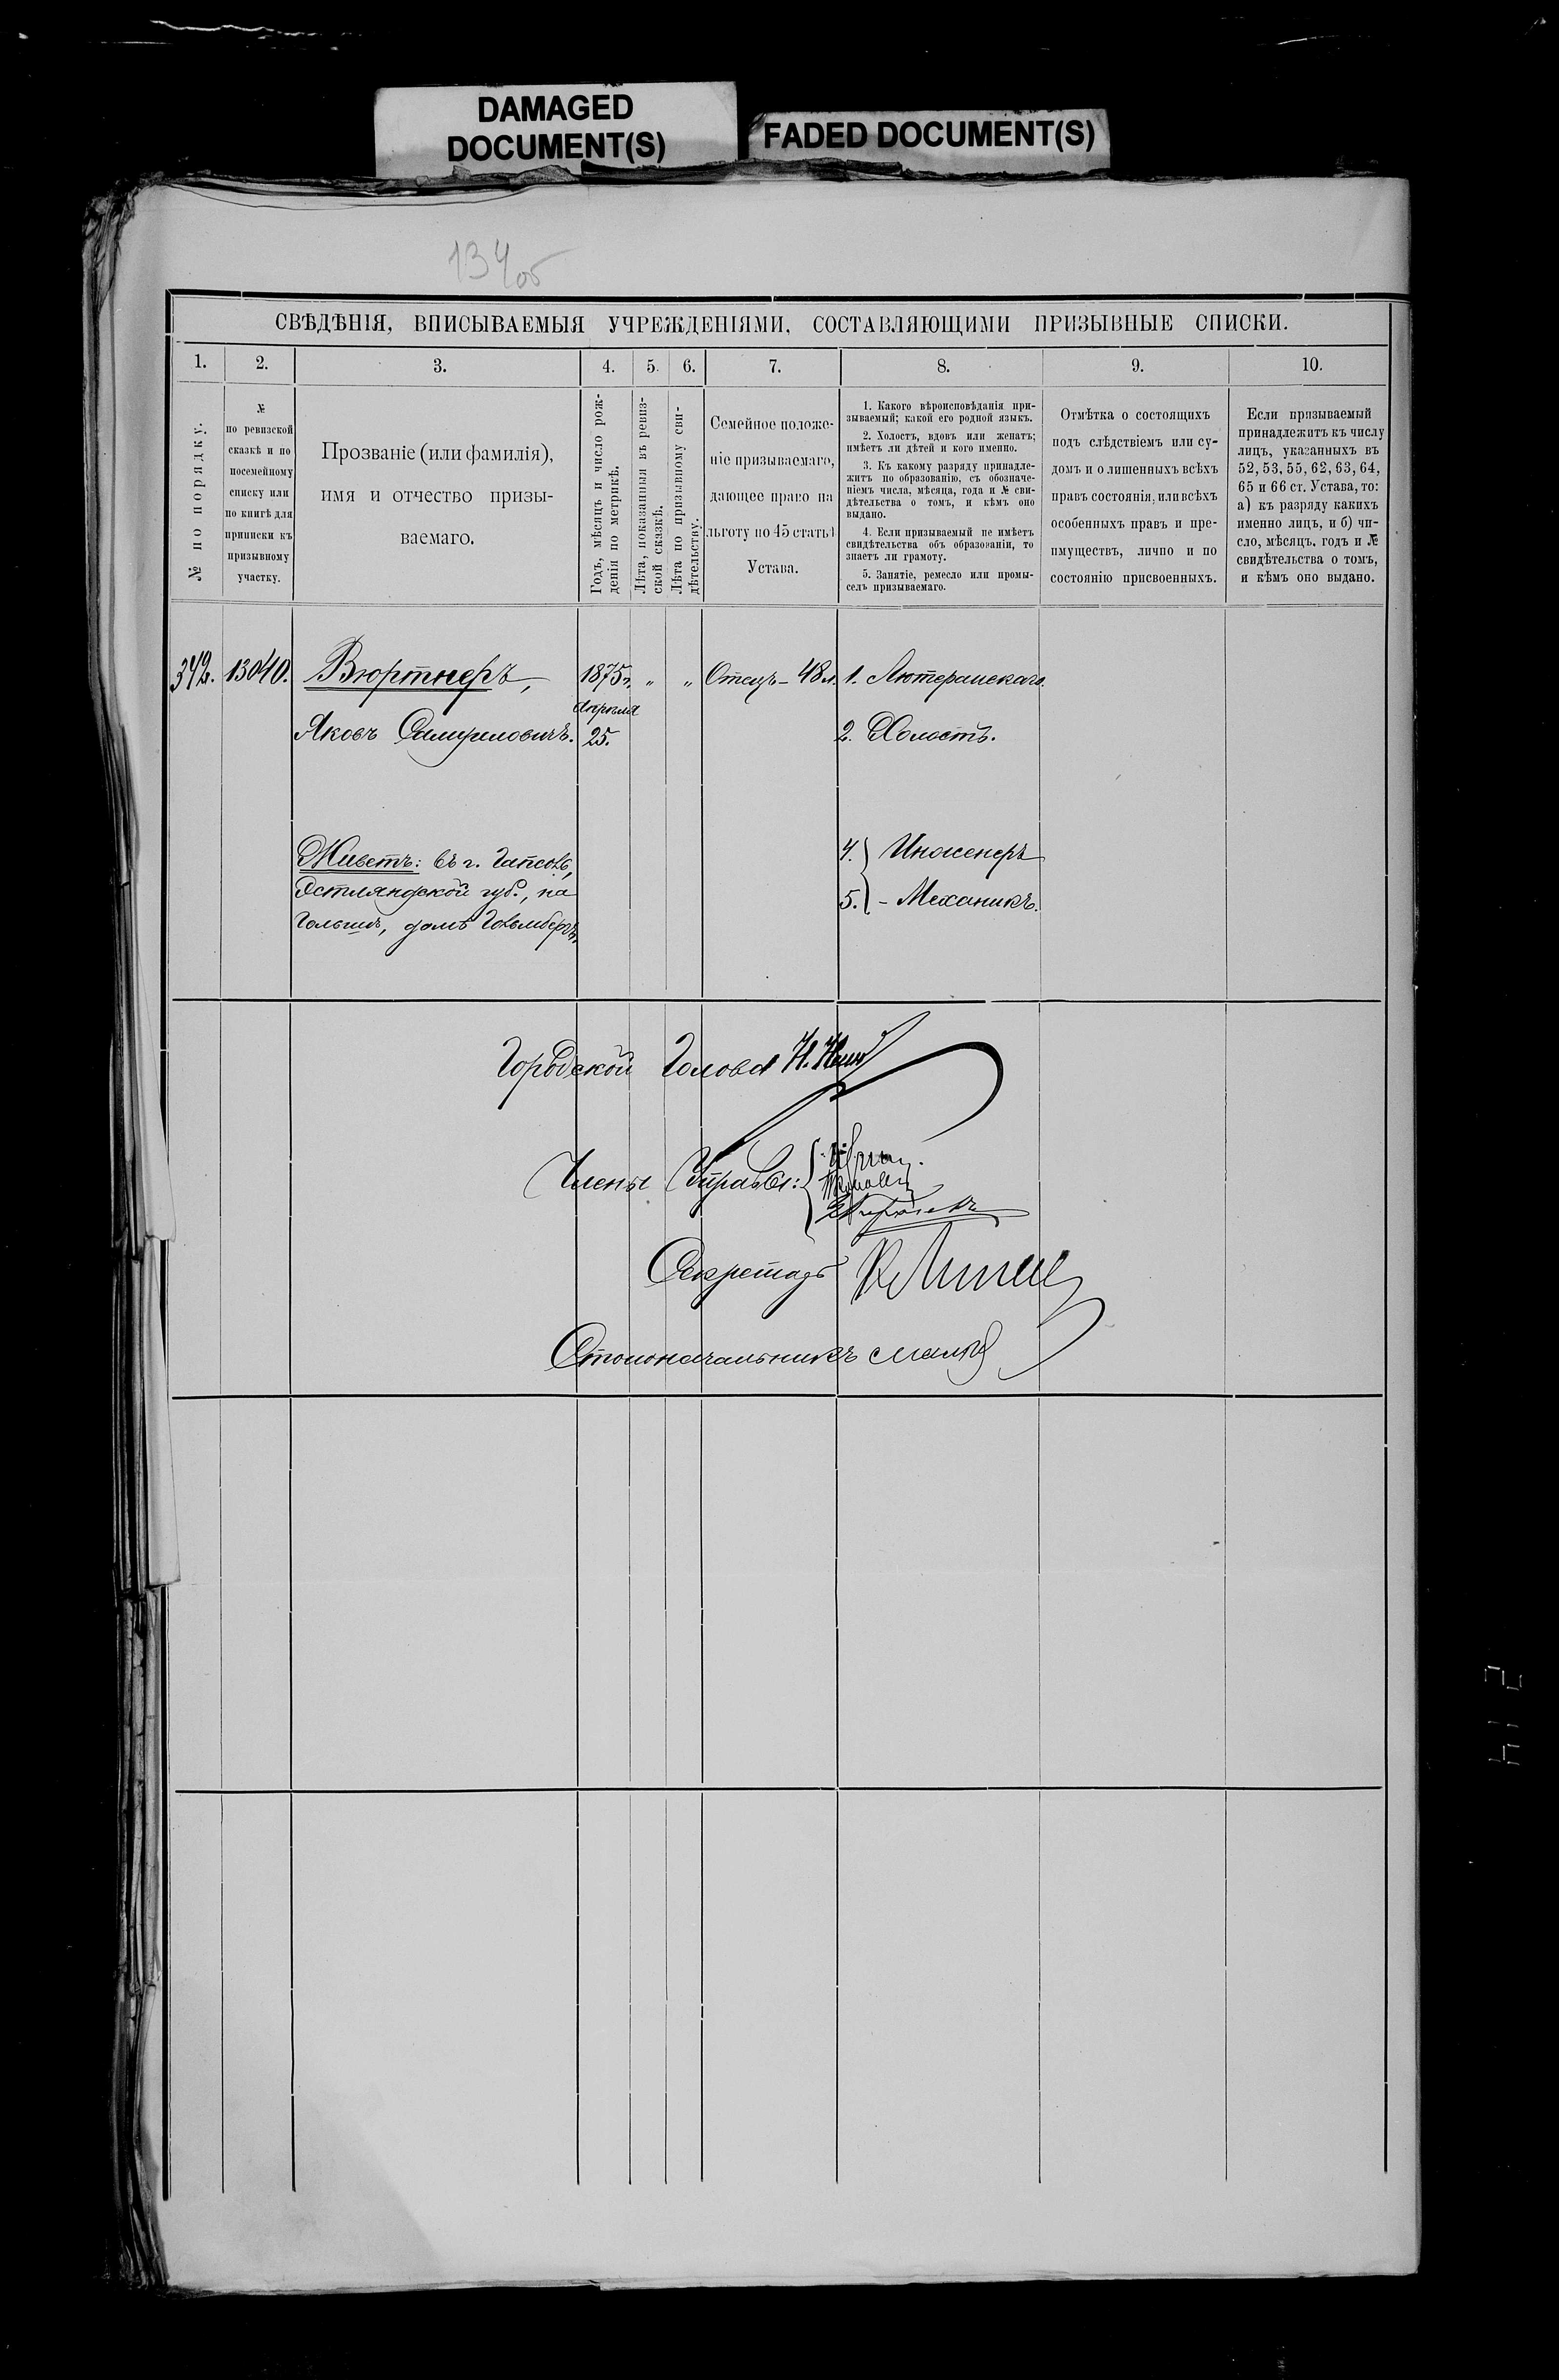 DAMAGED
DOCUMENT(S)
FADED DOCUMENT(S)
134об
СВѢДѢНІЯ, ВПИСЫВАЕМЫЯ УЧРЕЖДЕНІЯМИ, СОСТАВЛЯЮЩИМИ ПРИЗЫВНЫЕ СПИСКИ.
1.
2.
3.
4.
5.
6.
7.
8.
9.
10.
№ по порядку.
№
по ревизской
сказкѣ и по
посемейному
списку или
по книгѣ для
приписки къ
призывному
участку.
Прозваніе (или фамилія),
имя и отчество призы-
ваемаго.
Годъ, мѣсяцъ и число рож-
денія по метрикѣ.
Лѣта, показанныя въ ревиз-
ской сказкѣ.
Лѣта по призывному сви-
дѣтельству.
Семейное положе-
ніе призываемаго,
дающее право на
льготу по 45 статьѣ
Устава.
1. Какого вѣроисповѣданія при-
зываемый; какой его родной языкъ.
2. Холостъ, вдовъ или женатъ;
имѣетъ ли дѣтей и кого именно.
3. Къ какому разряду принадле-
житъ по образованію, съ обозначе-
ніемъ числа, мѣсяца, года и № сви-
дѣтельства о томъ, и кѣмъ оно
выдано.
4. Если призываемый не имѣетъ
свидѣтельства объ образованіи, то
знаетъ ли грамоту.
5. Занятіе, ремесло или промы-
селъ призываемаго.
Отмѣтка о состоящихъ
подъ слѣдствіемъ или су-
домъ и о лишенныхъ всѣхъ
правъ состоянія, или всѣхъ
особенныхъ правъ и пре-
имуществъ, лично и по
состоянію присвоенныхъ.
Если призываемый
принадлежитъ къ числу
лицъ, указанныхъ въ
52, 53, 55, 62, 63, 64,
65 и 66 ст. Устава, то:
а) къ разряду какихъ
именно лицъ, и б) чи-
сло, мѣсяцъ, годъ и №
свидѣтельства о томъ,
и кѣмъ оно выдано.
342. 13040. Вюртнеръ, 1875 г. „ „ Отецъ - 48 л. 1. Лютеранскаго.
Апрѣля
Яковъ Самуиловичъ. 25. 2. Холостъ.
Живетъ: въ г. Гапсалѣ,
Эстляндской губ., на
домъ
4. } Инженеръ
5. } - Механикъ.
Городской Голова
Члены Управы:
Секретарь
Столоначальникъ
214